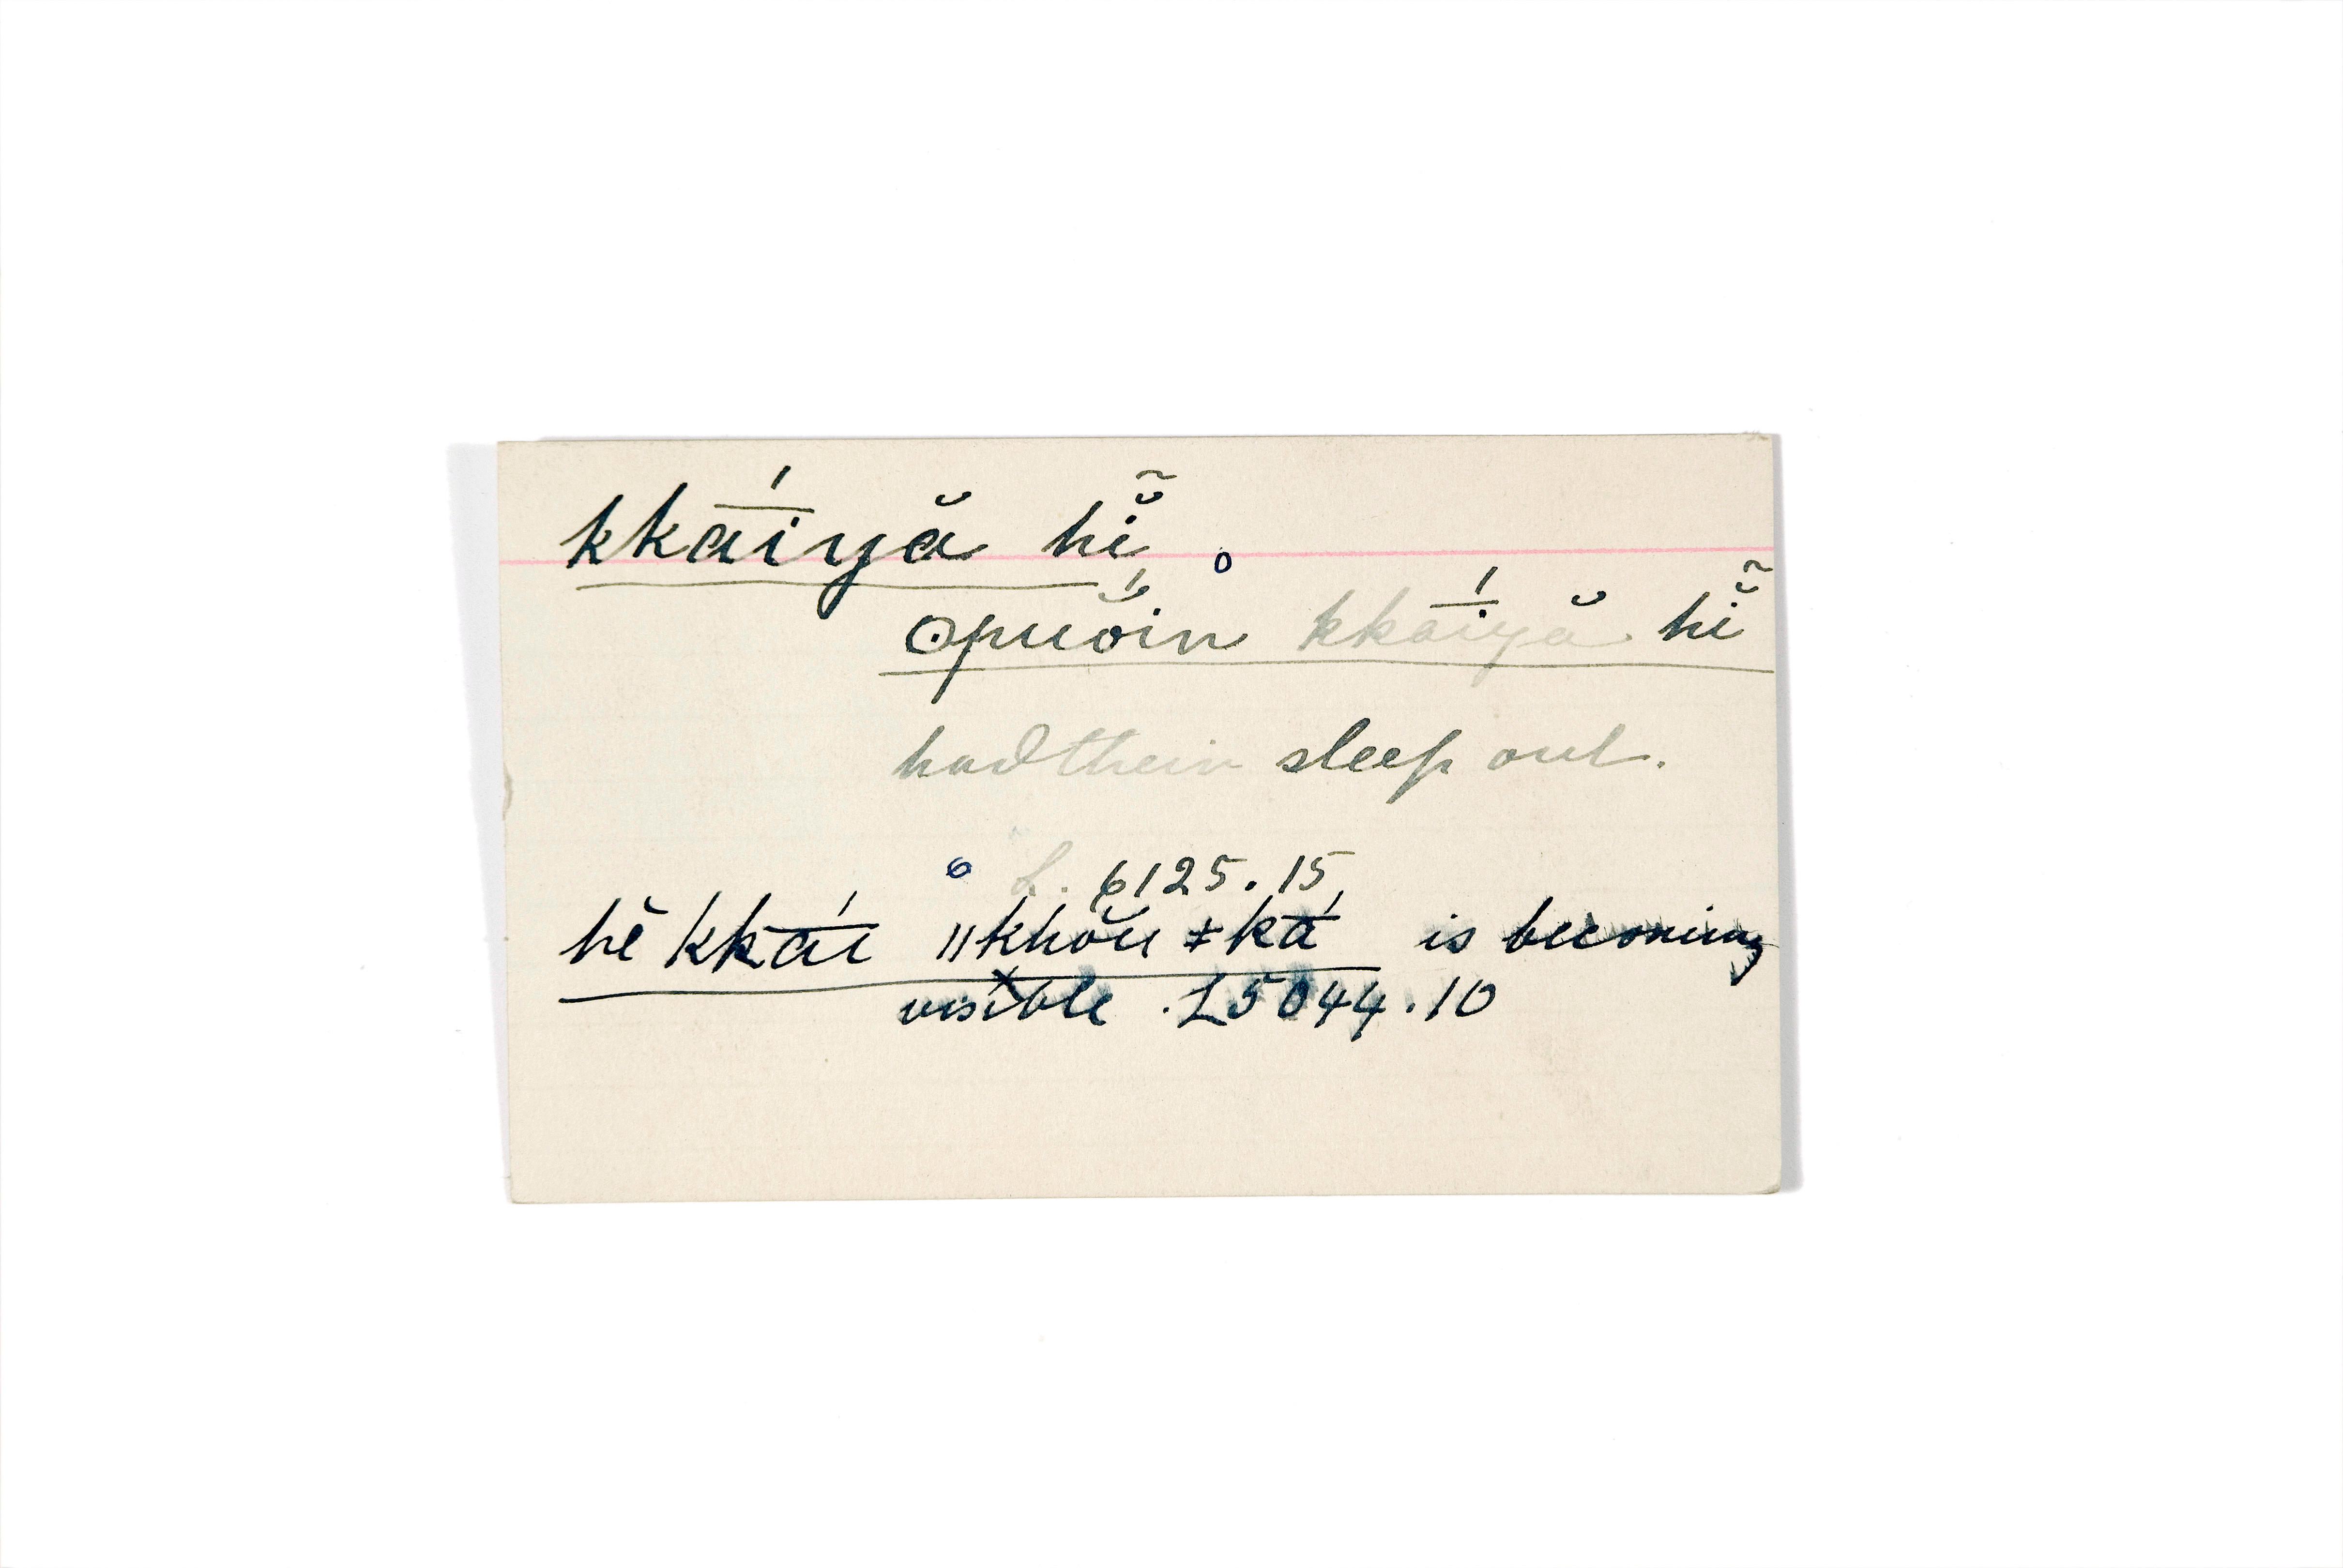 kkā́iyă hĭ̃ o
o̤puŏ́in kkā́iyă hĭ̃
had their sleep out.
o L. 6125.15
hĕ kkā́i ǁkhŏu ǂkā́ is becoming
visible . L5044.10